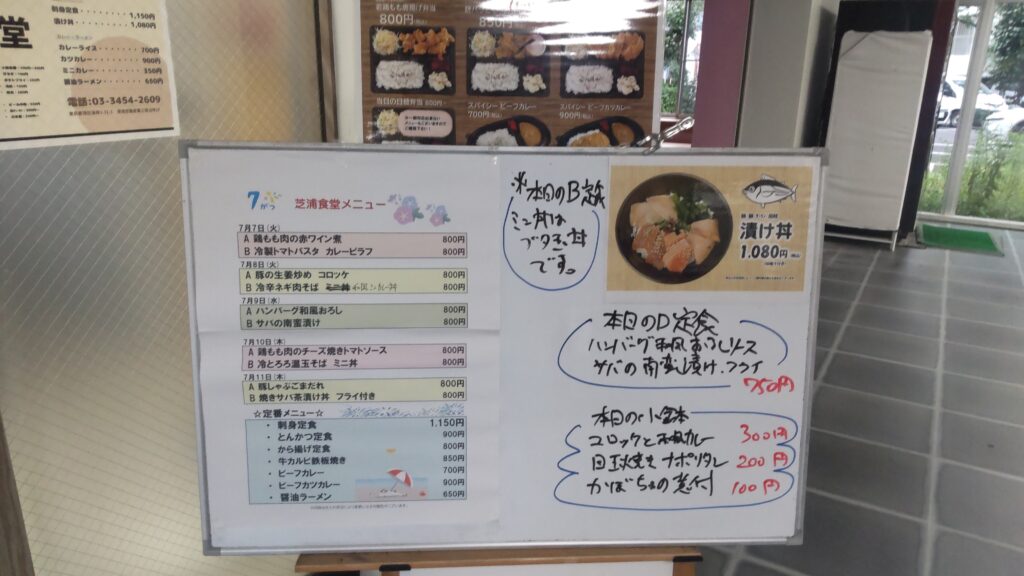 刺身定食・・・・・・・・1,150円
漬け丼・・・・・・・・・1,080円
堂
カレーライス・・・・・・・700円
カツカレー・・・・・・・・900円
ミニカレー・・・・・・・・350円
醤油ラーメン・・・・・・・650円
電話:03-3454-2609
800円
850円
当日の日替弁当 800円
スパイシー ビーフカレー
700円(税込)
スパイシー ビーフカツカレー
900円(税込)
7がつ
芝浦食堂メニュー
7月7日(火)
A 鶏もも肉の赤ワイン煮 800円
B 冷製トマトパスタ カレーピラフ 800円
7月8日(火)
A 豚の生姜炒め コロッケ 800円
B 冷辛ネギ肉そば ミニ丼 800円
7月9日(水)
A ハンバーグ和風おろし 800円
B サバの南蛮漬け 800円
7月10日(木)
A 鶏もも肉のチーズ焼きトマトソース 800円
B 冷とろろ温玉そば ミニ丼 800円
7月11日(木)
A 豚しゃぶごまだれ 800円
B 焼きサバ茶漬け丼 フライ付き 800円
☆定番メニュー☆
・ 刺身定食 1,150円
・ とんかつ定食 900円
・ から揚げ定食 800円
・ 牛カルビ鉄板焼き 850円
・ ビーフカレー 700円
・ ビーフカツカレー 900円
・ 醤油ラーメン 650円
※本日のB定食
ミニ丼は
ブタ玉丼
です。
漬け丼
1.080円
本日のD定食
ハンバーグ和風おろしソース
サバの南蛮漬け.フライ
750円
本日の小鉢
コロッケと カレー 300円
目玉焼き ナポリタン 200円
かぼちゃの煮付 100円